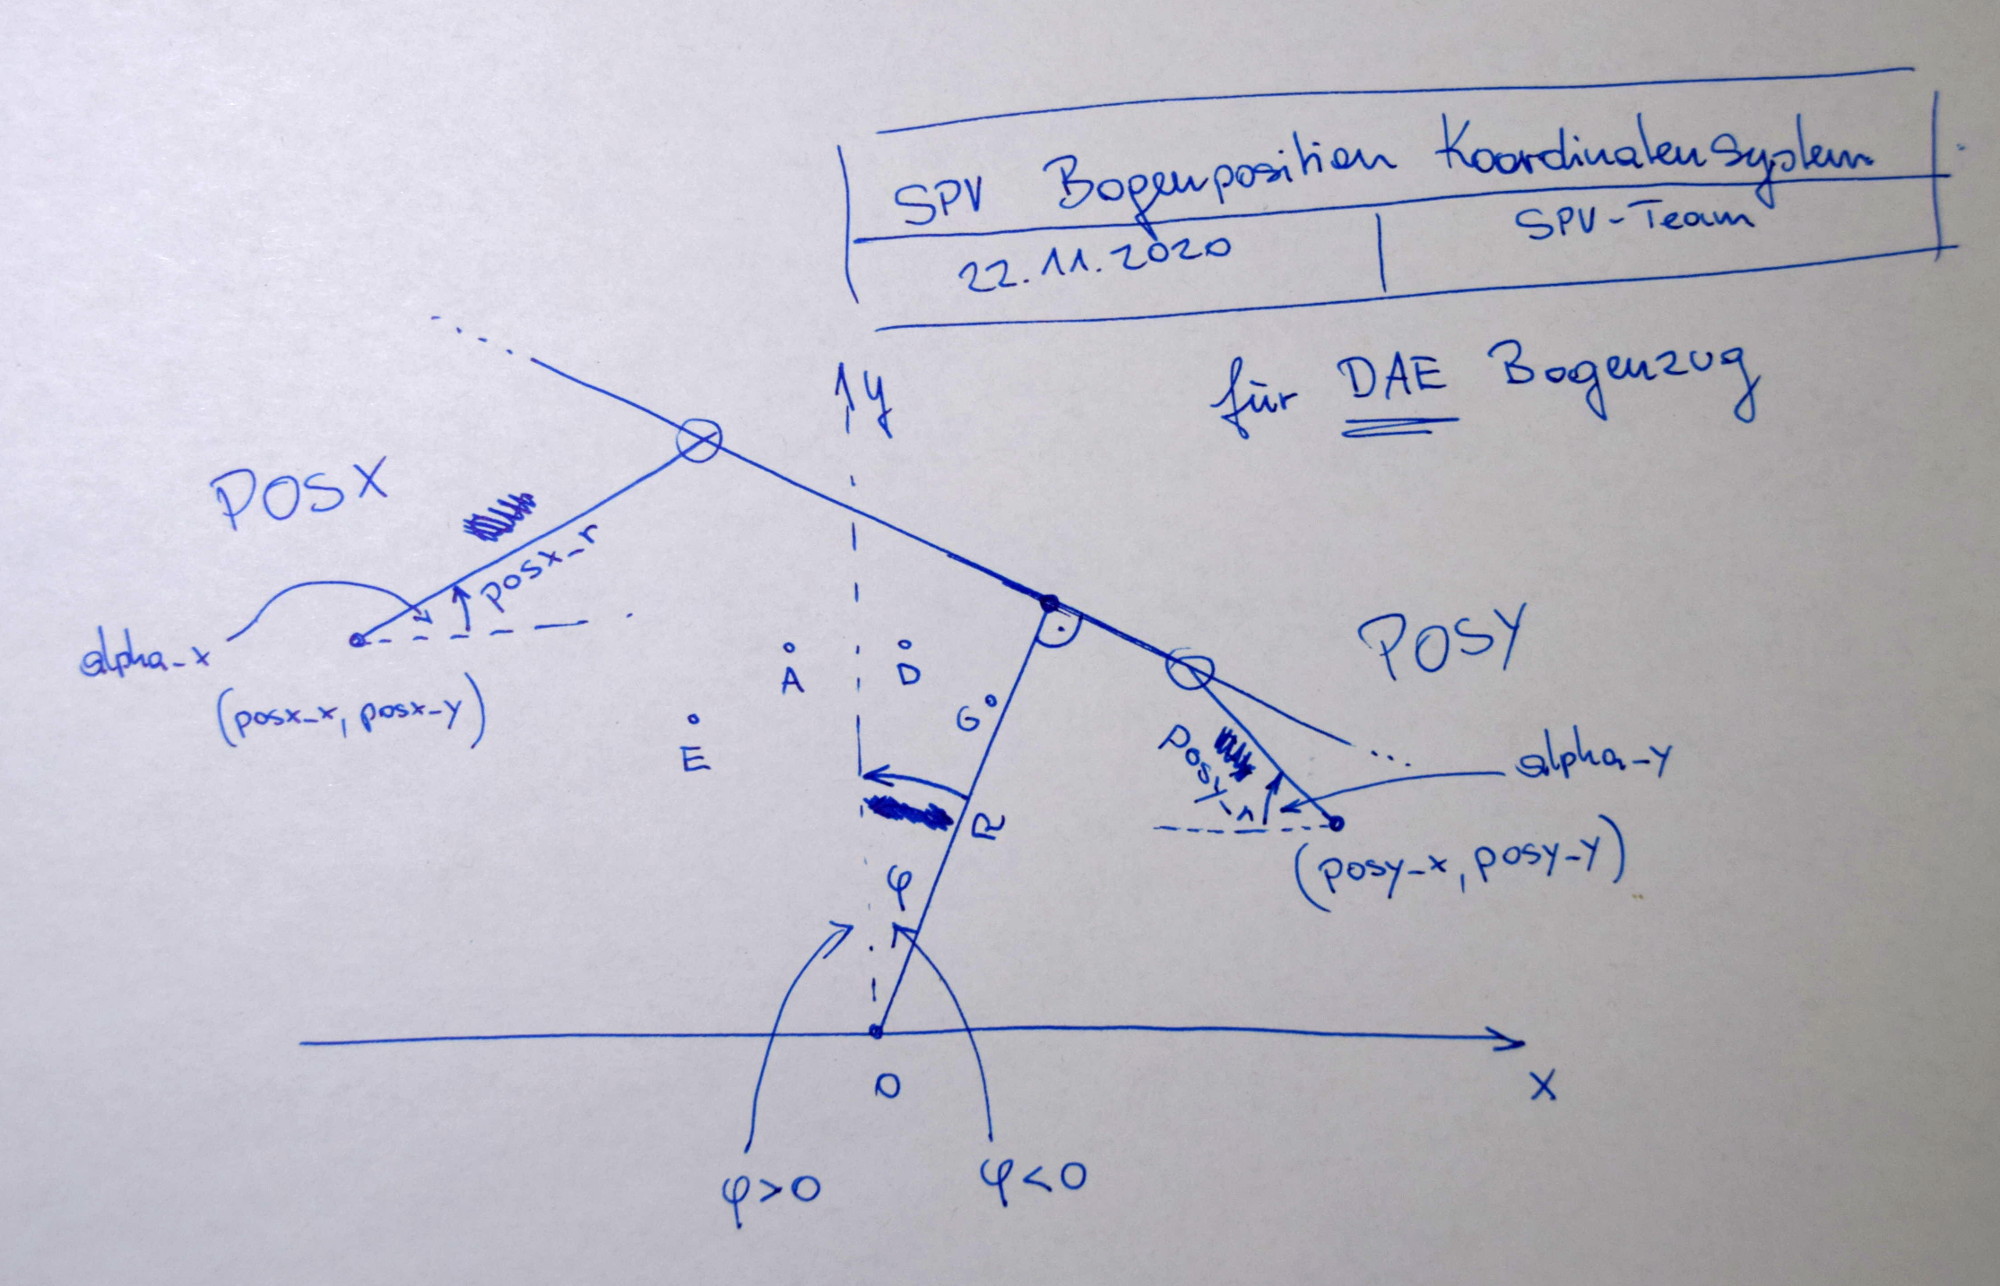 SPV Bogenposition Koordinatensystem
22.11.2020
SPV-Team
für DAE Bogenzug
y
POSX
posx_r
alpha_x
(posx_x, posx_y)
A
D
E
G
POSY
posy_r
alpha_y
(posy_x, posy_y)
R
φ
O
X
φ>0
φ<0